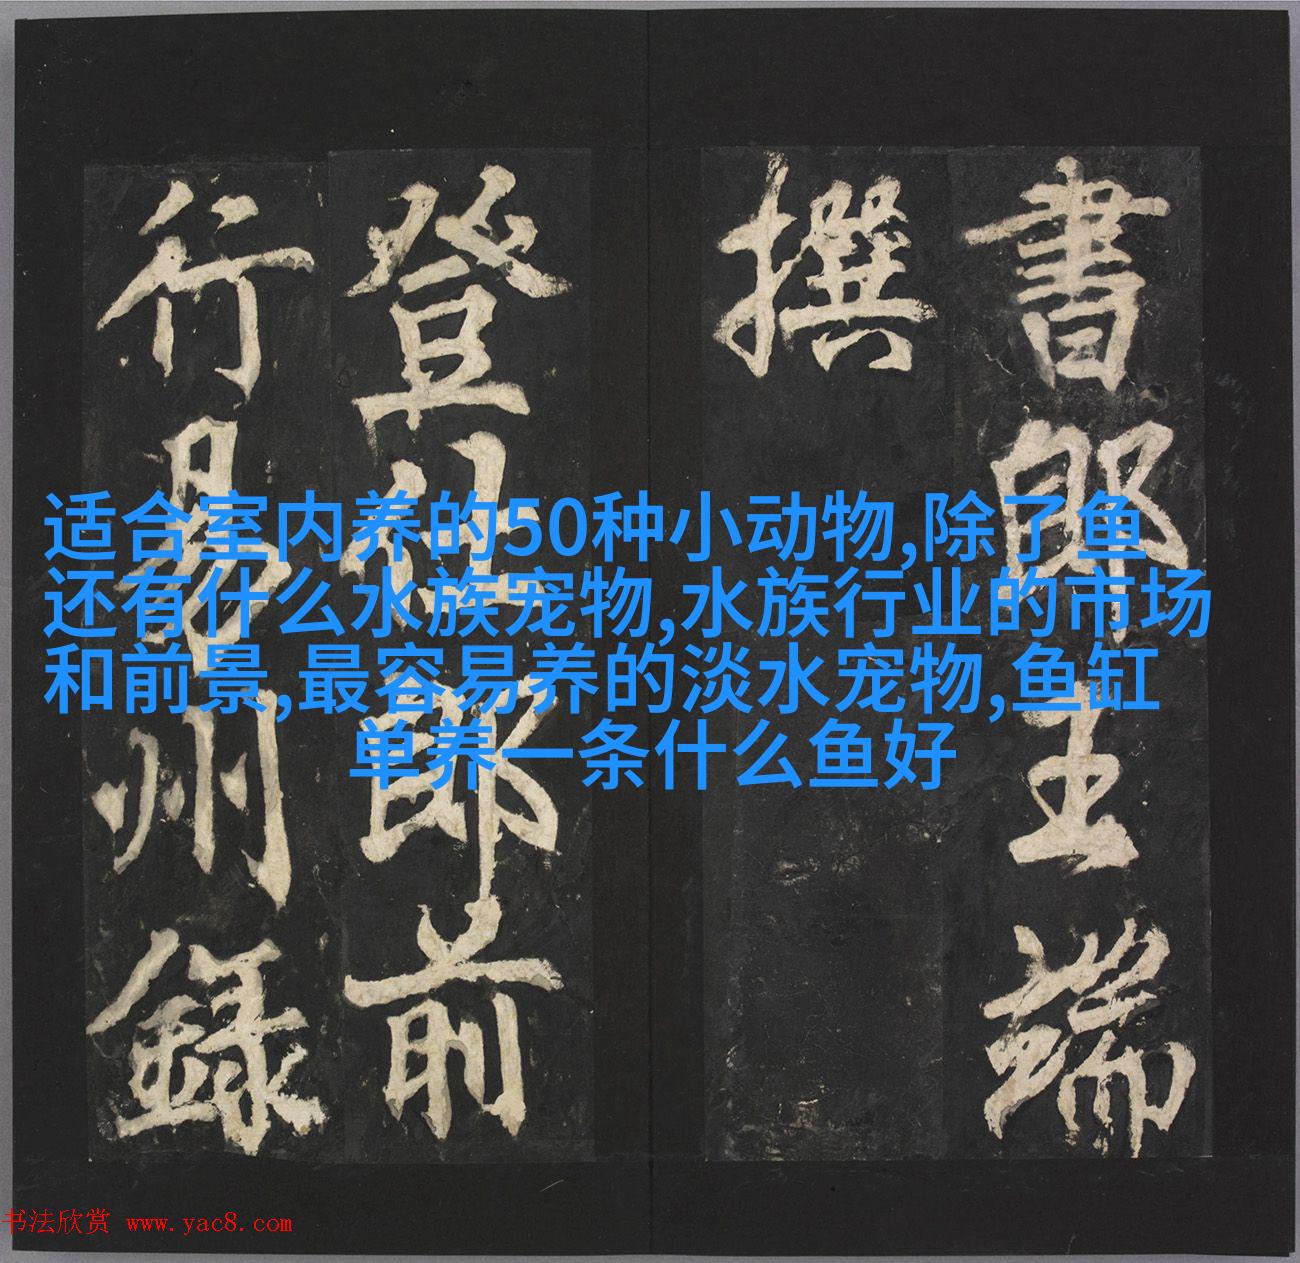 書郎王端
撰
登仕郎前
行易州録
适合室内养的50种小动物,除了鱼
还有什么水族宠物,水族行业的市场
和前景,最容易养的淡水宠物,鱼缸
单养一条什么鱼好
书法欣赏 www.yac8.com